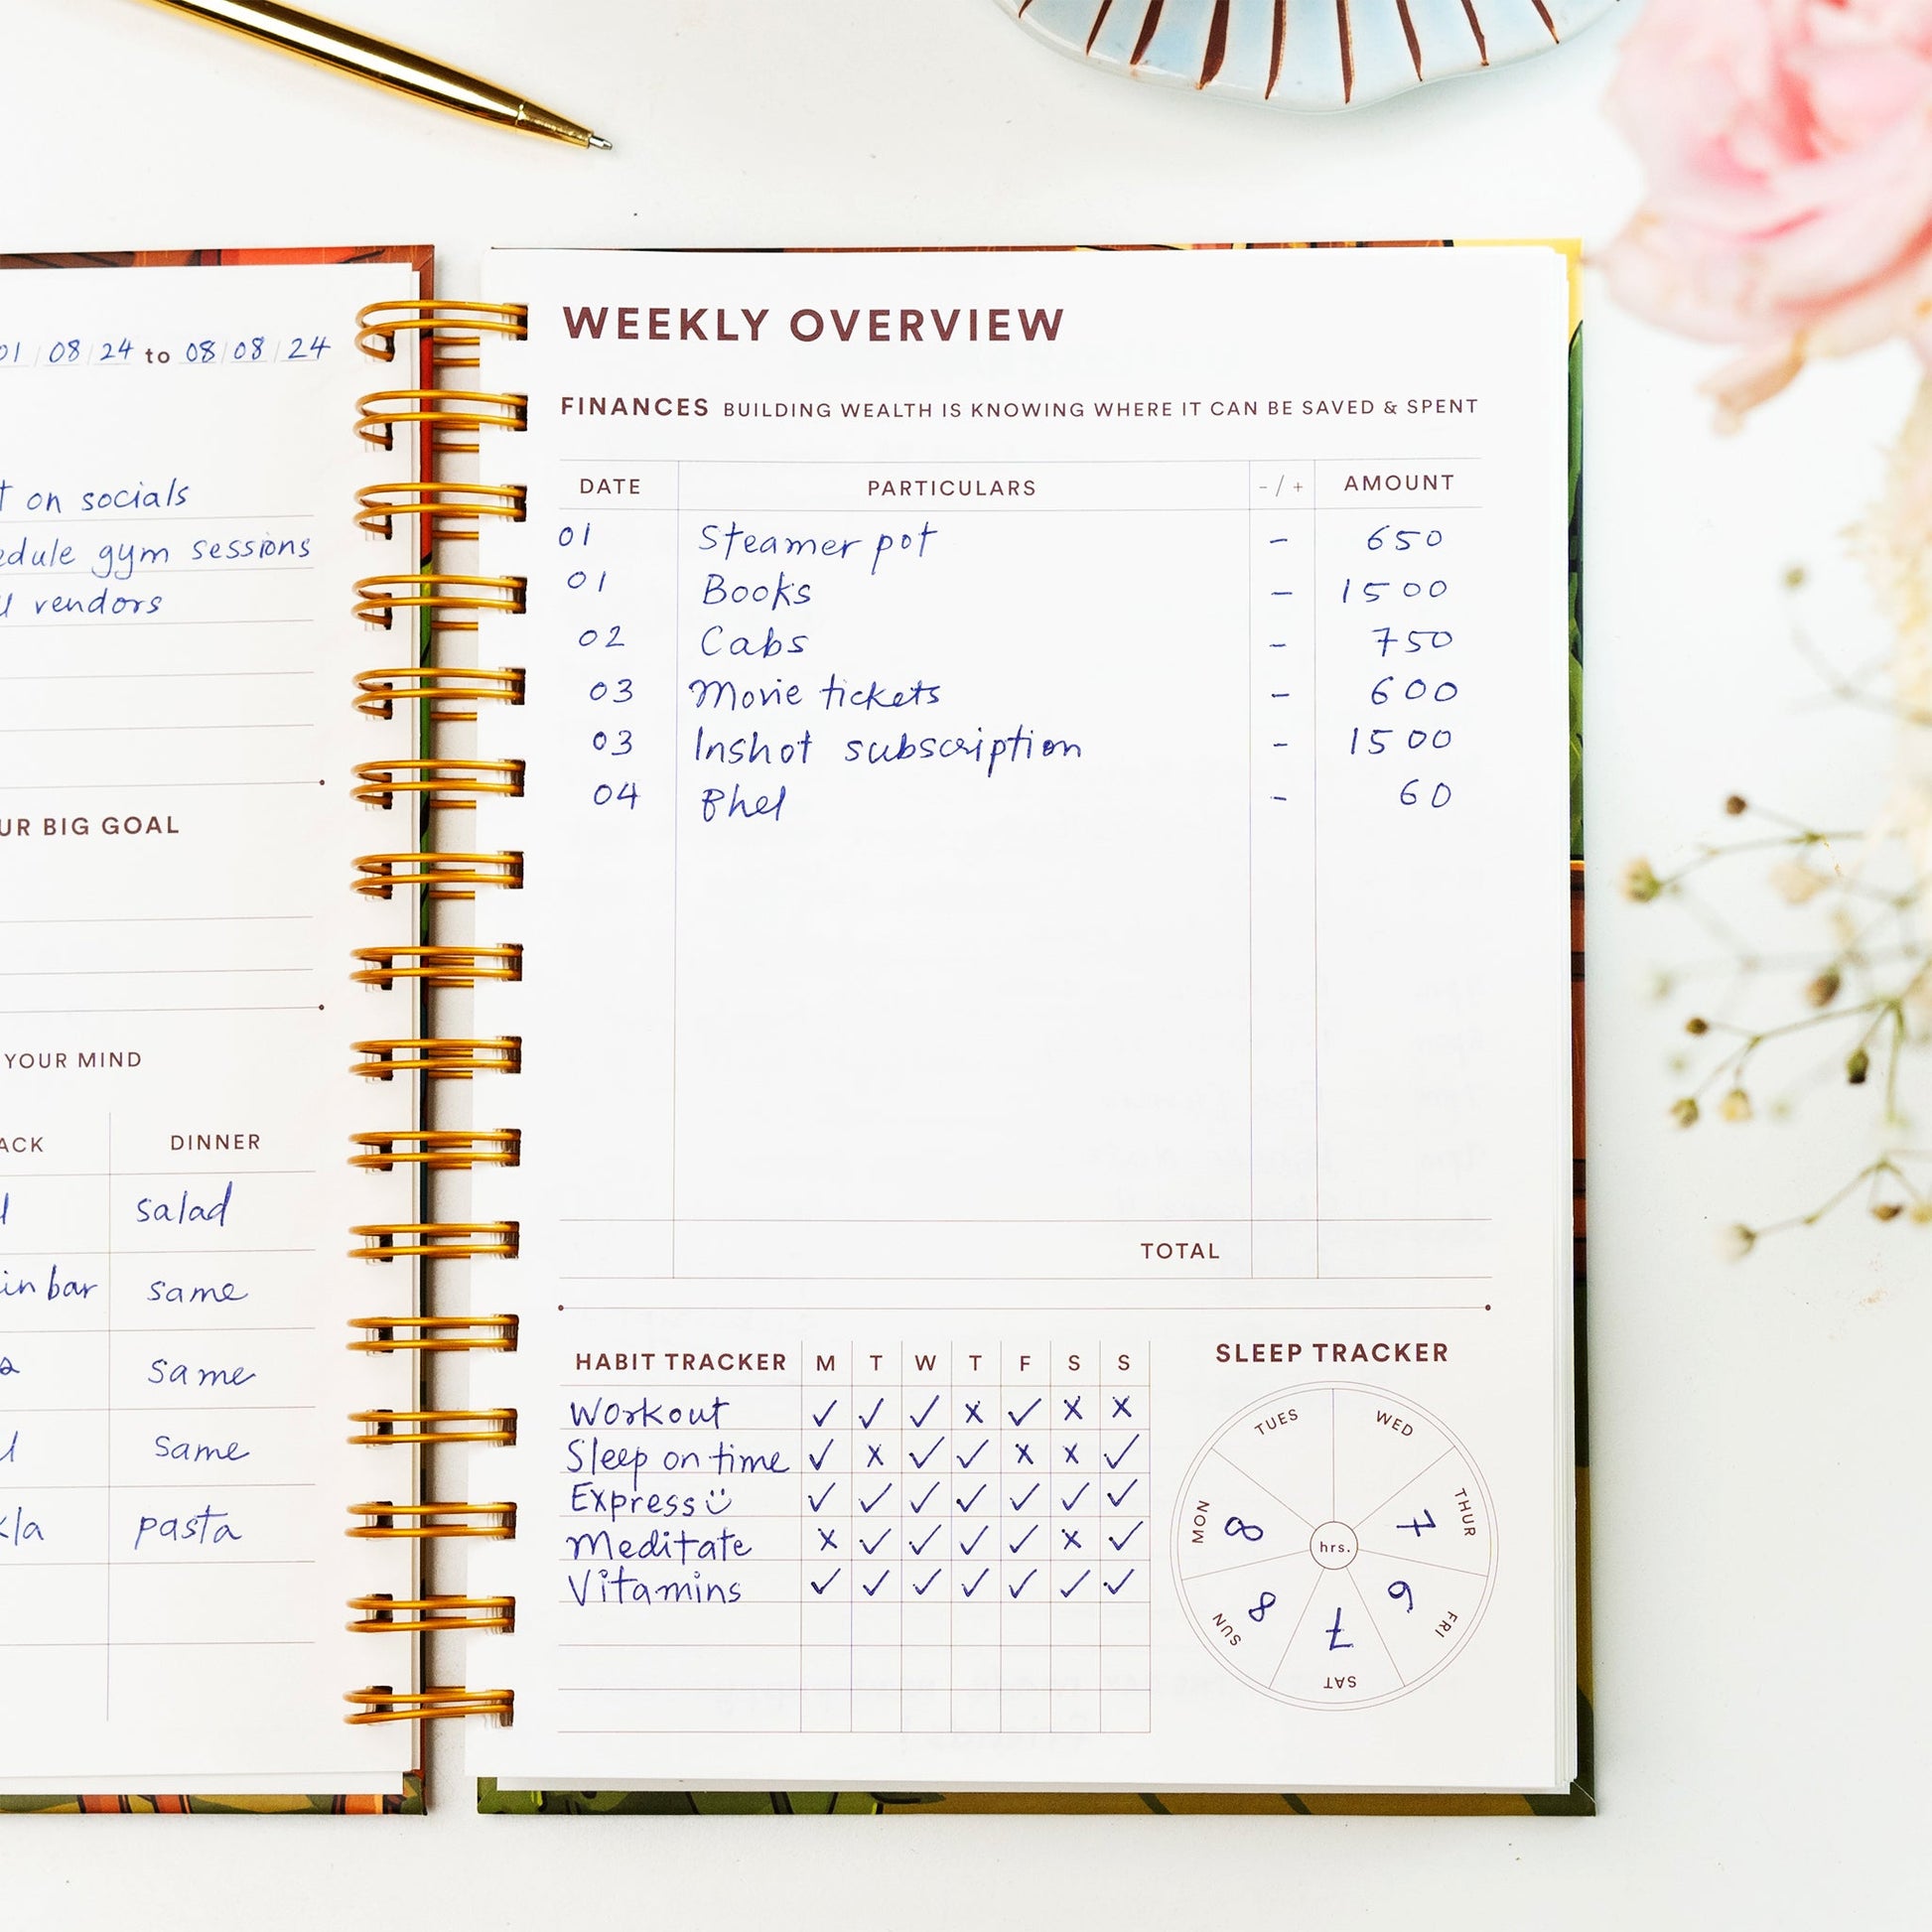 01 / 08 / 24 to 08 / 08 / 24
on socials
gym sessions
vendors
BIG GOAL
YOUR MIND
DINNER
salad
bar same
same
same
pasta
WEEKLY OVERVIEW
FINANCES BUILDING WEALTH IS KNOWING WHERE IT CAN BE SAVED & SPENT
DATE PARTICULARS - / + AMOUNT
01 Steamer pot - 650
01 Books - 1500
02 Cabs - 750
03 Movie tickets - 600
03 Inshot subscription - 1500
04 Bhel - 60
TOTAL
HABIT TRACKER M T W T F S S
Workout ✓ ✓ ✓ x ✓ x x
Sleep on time ✓ x ✓ ✓ x x ✓
Express ✓ ✓ ✓ ✓ ✓ ✓ ✓
Meditate x ✓ ✓ ✓ ✓ x ✓
Vitamins ✓ ✓ ✓ ✓ ✓ ✓ ✓
SLEEP TRACKER
TUES WED
MON 8 hrs. 7 THUR
SUN 8 7 6 FRI
SAT